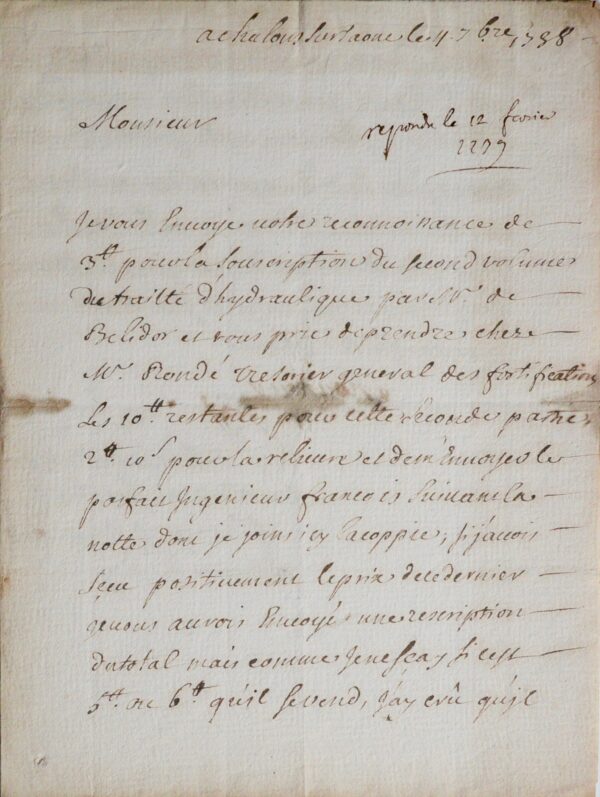 a chalons sur saone le 4 7bre 1738
Monsieur
repondu le 12 fevrier
1739
Je vous Envoye votre reconnoissance de
3tt pour la souscription du second volume
du traitté d'hydraulique par Mr. de
Belidor et vous prie de prendre chez
Mr. Rondé tresorier general des fortifications
Les 10tt restantes pour cette seconde partie,
2tt 10s pour la relieure et de m'Envoyer le
parfait Ingenieur francois suivant la
notte dont je joins icy la coppie; si j'avois
sçeu positivement le prix de ce dernier
je vous aurois Envoyé une rescription
du total mais comme Je ne sçay si c'est
5tt ou 6tt qu'il se vend, j'ay crû qu'il